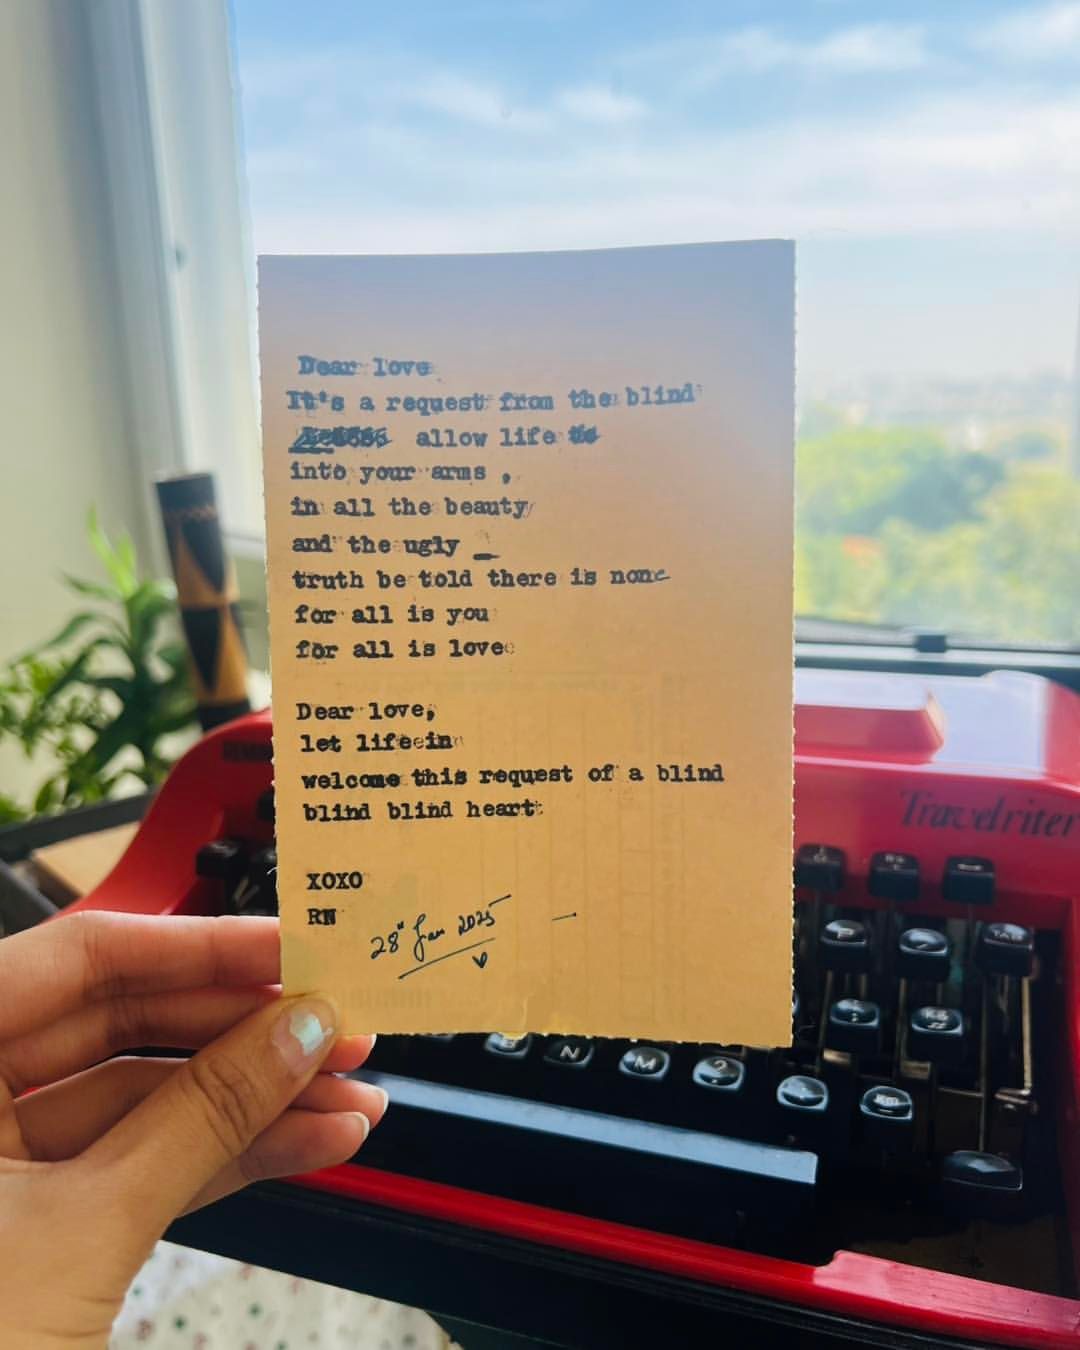 Dear love
It's a request from the blind
allow life
into your arms ,
in all the beauty
and the ugly _
truth be told there is none
for all is you
for all is love
Dear love,
let life in
welcome this request of a blind
blind blind heart
XOXO
RN
28th Jan 2025
Travelriter
P
TAB
N
M
?